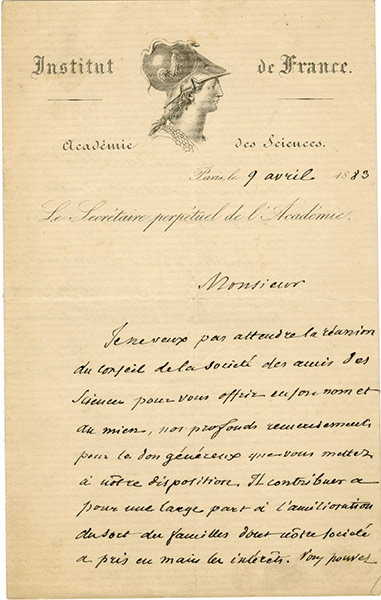 Institut de France.
Académie des Sciences.
Paris, le 9 avril 1883
Le Secrétaire perpétuel de l'Académie.
Monsieur
Je ne veux pas attendre la réunion
du Conseil de la société des amis des
Sciences pour vous offrir en son nom et
du mien, nos profonds remerciements
pour le don généreux que vous mettez
à nôtre disposition. Il contribuera
pour une large part à l'amélioration
du sort des familles dont nôtre société
a pris en main les intérêts. Vous pouvez